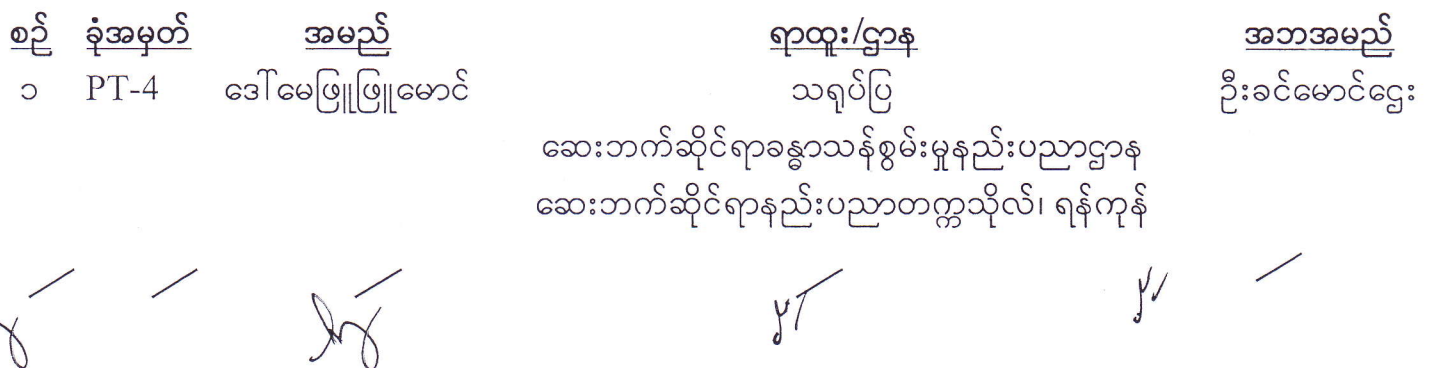 စဉ် ခုံအမှတ် အမည် ရာထူး/ဌာန အဘအမည်
၁ PT-4 ဒေါ်မေဖြူဖြူမောင် သရုပ်ပြ ဦးခင်မောင်ဌေး
ဆေးဘက်ဆိုင်ရာခန္ဓာသန်စွမ်းမှုနည်းပညာဌာန
ဆေးဘက်ဆိုင်ရာနည်းပညာတက္ကသိုလ်၊ ရန်ကုန်